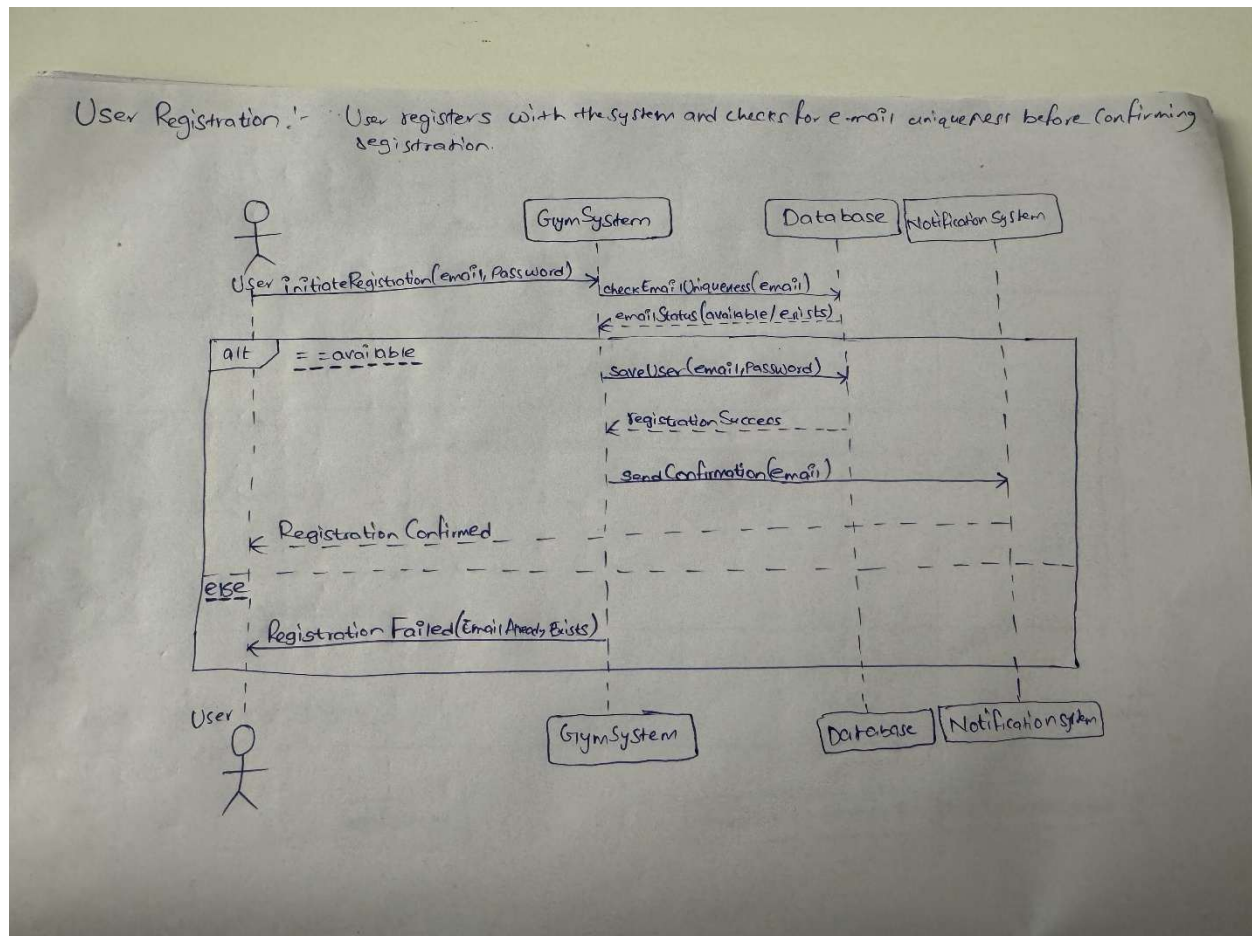 User Registration:- User registers with the system and checks for e-mail uniqueness before Confirming
registration.
GymSystem
Database
Notification System
User
initiateRegistration(email, Password)
checkEmailUniqueness(email)
emailStatus(available/exists)
alt
= =available
saveUser(email, Password)
registrationSuccess
sendConfirmation(email)
Registration Confirmed
else
Registration Failed(Email Already Exists)
User
GymSystem
Database
Notification system